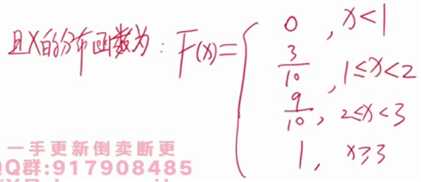 且X的分布函数为: F(x)= { 0 , x<1
3/10 , 1≤x<2
9/10 , 2≤x<3
1 , x≥3
一手更新倒卖断更
QQ群:917908485